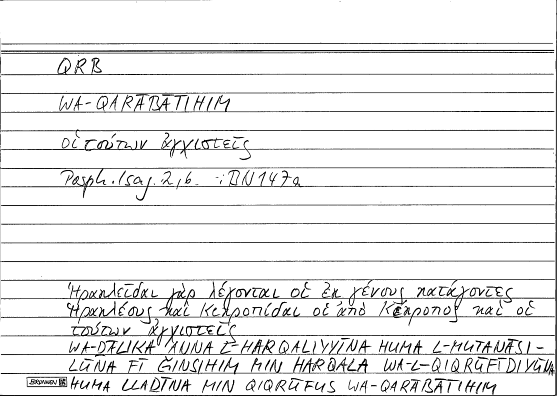 QRB
WA-QARĀBĀTIHIM
οἱ τούτων ἀγχιστεῖς
Porph. Isag. 2,6. :iBN 147a
Ἡρακλεῖδαι γὰρ λέγονται οἱ ἐκ γένους κατάγοντες
Ἡρακλέους καὶ Κεκροπίδαι οἱ ἀπὸ Κέκροπος καὶ οἱ
τούτων ἀγχιστεῖς
WA-ḎĀLIKA ANNA L-HARQALIYYĪNA HUMA L-MUTANĀSI-
LŪNA FĪ ǦINSIHIM MIN HARQALA WA-L-QIQRŪFĪDIYŪNA
HUMA LLAḎĪNA MIN QIQRŪFUS WA-QARĀBĀTIHIM
BRUNNEN